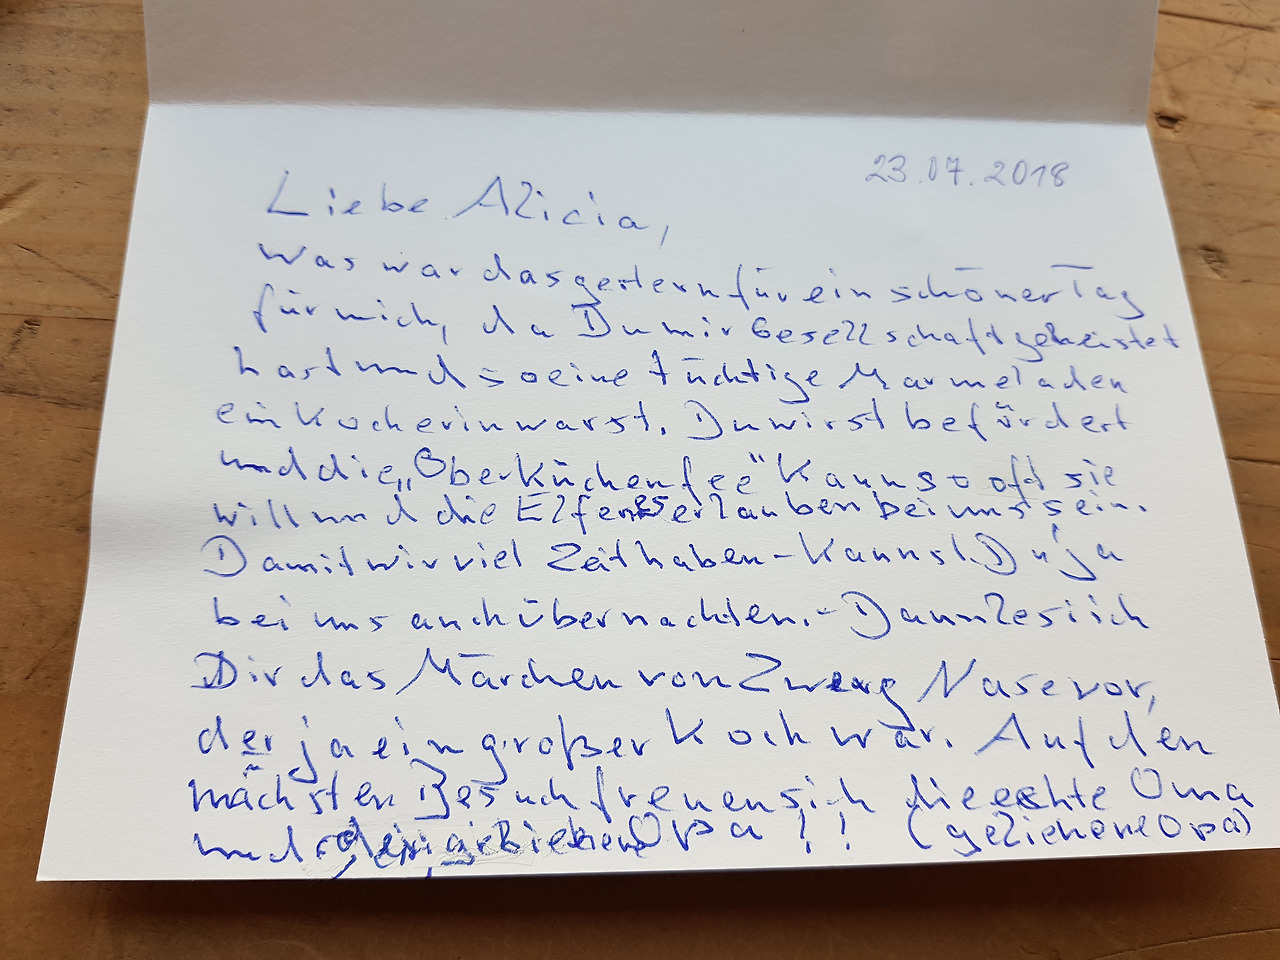 23.07.2018
Liebe Alicia,
Was war das gestern für ein schöner Tag
für mich, da Du mir Gesellschaft geleistet
hast und so eine tüchtige Marmeladen
einkocherin warst. Du wirst befördert
und die „Oberküchenfee" kann so oft sie
will und die Elfen es erlauben bei uns sein.
Damit wir viel Zeit haben - kannst Du ja
bei uns auch übernachten. - Dann les ich
Dir das Märchen von Zwerg Nase vor,
der ja ein großer Koch war. Auf den
nächsten Besuch freuen sich die echte Oma
und der Opa!! (geliehene Opa)